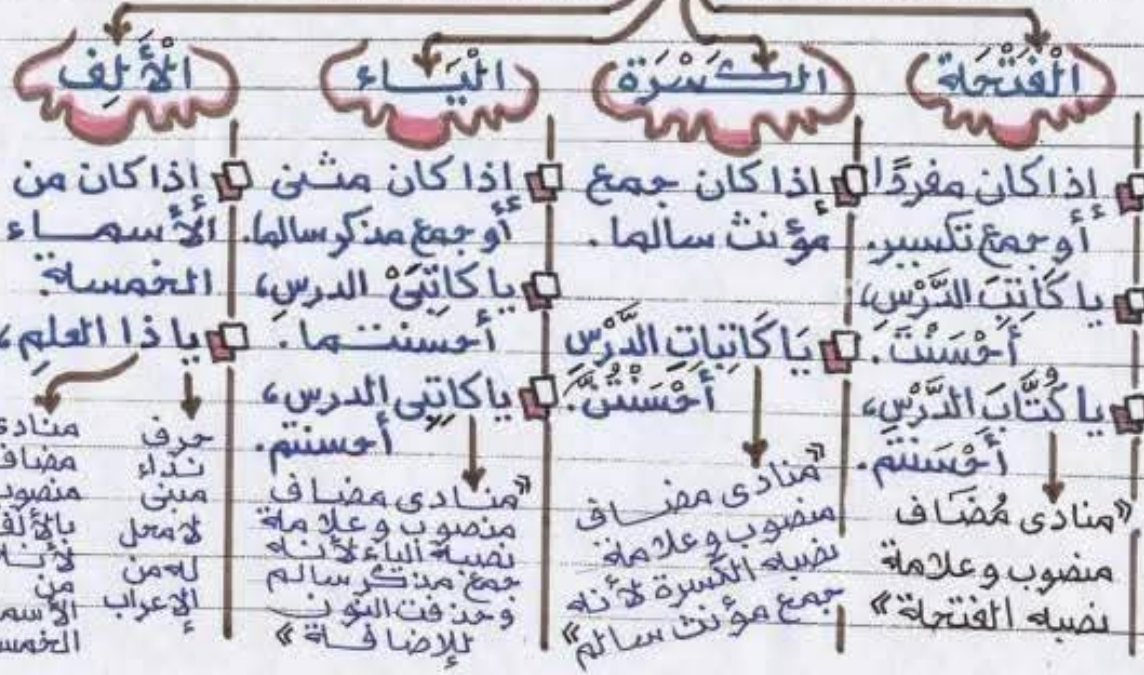 الْفَتْحَة
إذا كان مفردًا
أو جمع تكسير.
يا كَاتِبَ الدَّرْسِ،
أَحْسَنْتَ.
يا كُتَّابَ الدَّرْسِ،
أَحْسَنْتُم.
«منادى مُضَاف
منصوب وعلامة
نصبه الفتحة»
الكَسْرَة
إذا كان جمع
مؤنث سالما.
يَا كَاتِبَاتِ الدَّرْسِ
أَحْسَنْتُنَّ.
«منادى مضاف
منصوب وعلامة
نصبه الكسرة لأنه
جمع مؤنث سالم»
الْيَاء
إذا كان مثنى
أو جمع مذكر سالما.
يا كَاتِبَيْ الدرسِ،
أحسنتما.
يا كاتِبِي الدرس،
أحسنتم.
«منادى مضاف
منصوب وعلامة
نصبه الياء لأنه
جمع مذكر سالم
وحذفت النون
للإضافة»
الْأَلِف
إذا كان من
الأسماء
الخمسة.
يا ذا العلمِ،
حرف
نداء
مبنى
لا محل
له من
الإعراب
منادى
مضاف
منصوب
بالألف
لأنه
من